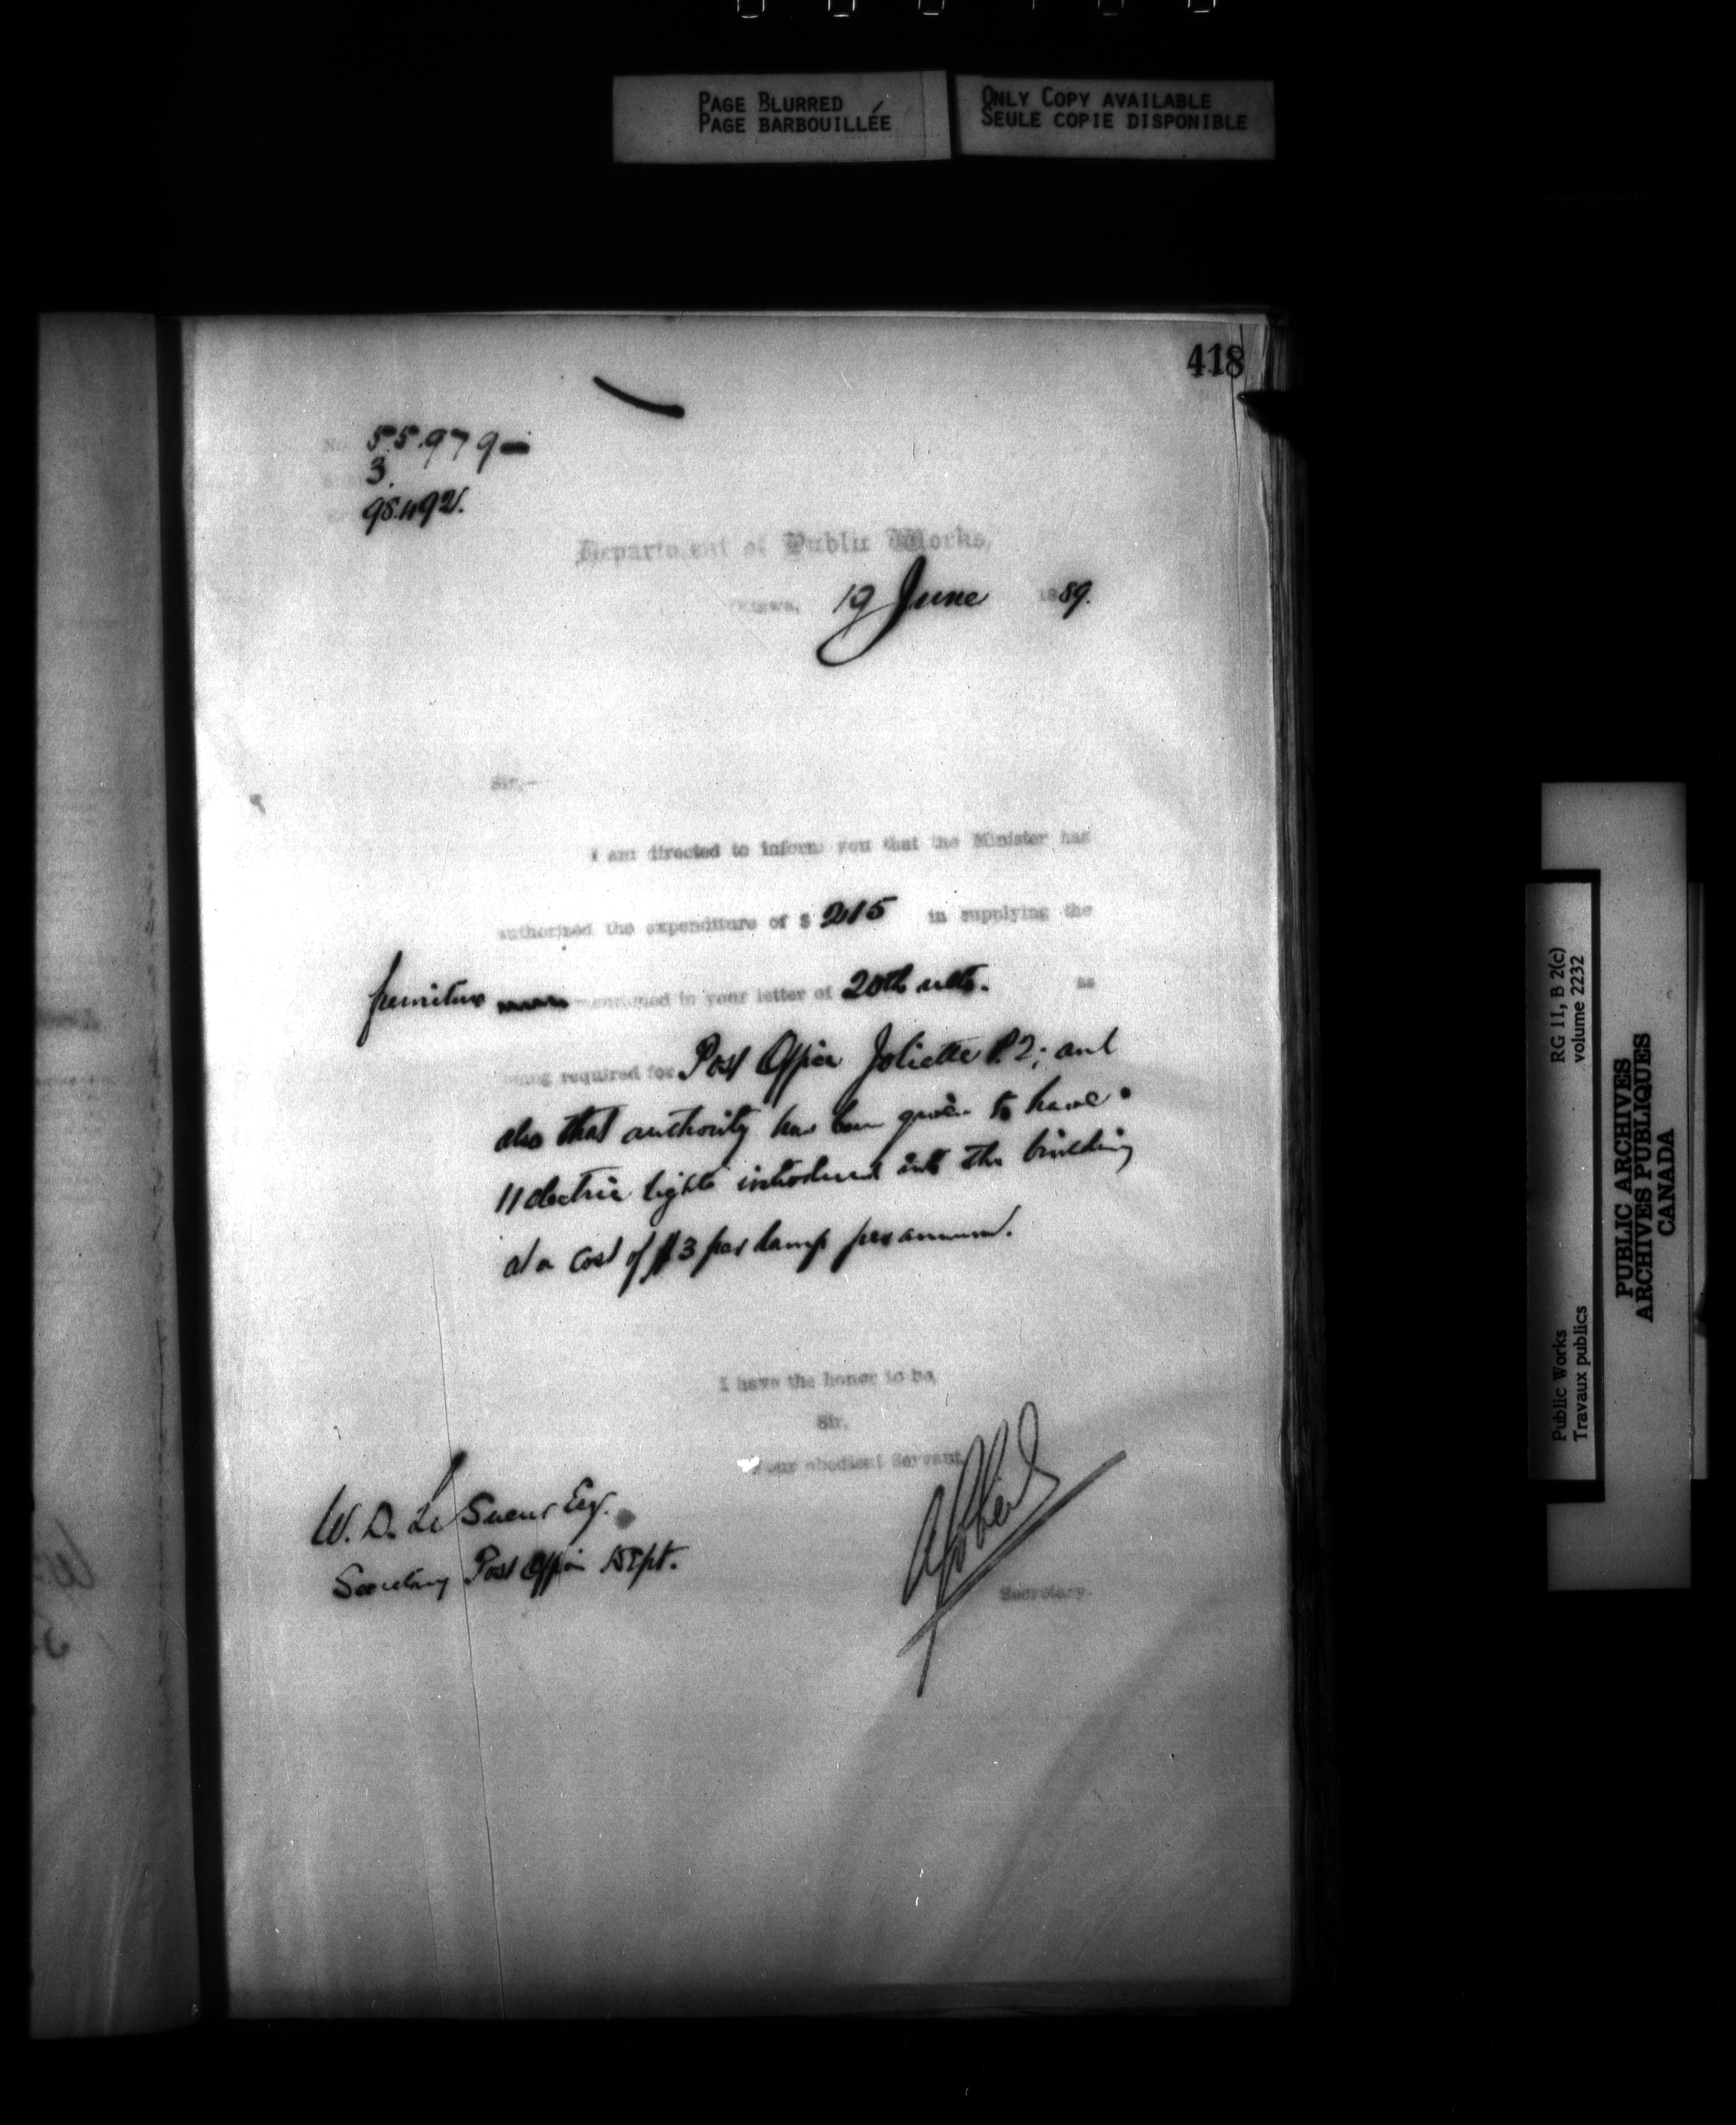 PAGE BLURRED
PAGE BARBOUILLÉE
ONLY COPY AVAILABLE
SEULE COPIE DISPONIBLE
418
No. 55.979
3.
98.492.
Department of Public Works,
Ottawa, 19 June 1889.
Sir,—
I am directed to inform you that the Minister has
authorized the expenditure of $ 215 in supplying the
furniture mentioned in your letter of 20th ulto. as
being required for Post Office Joliette P.Q; and
also that authority has been given to have
11 electric lights introduced into the building
at a cost of $3 per lamp per annum.
I have the honor to be,
Sir,
Your obedient Servant
W. D. Le Sueur Esq.
Secretary Post Office Dept.
Secretary.
RG 11, B 2(c)
volume 2232
Public Works
Travaux publics
PUBLIC ARCHIVES
ARCHIVES PUBLIQUES
CANADA